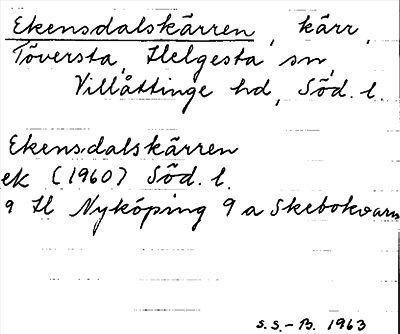 Ekensdalskärren, kärr,
Töversta, Helgesta sn,
Villåttinge hd, Söd. l.
Ekensdalskärren
ek (1960) Söd. l.
9 H Nyköping 9 a Skebokvarn
S.S.-B. 1963